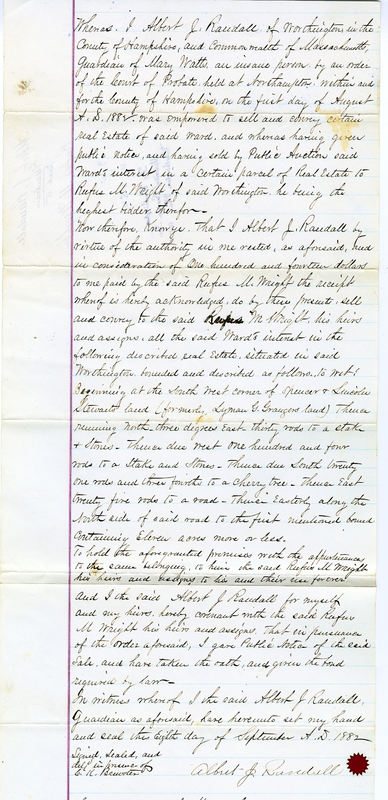 Whereas. I Albert J. Randall of Worthington, in the
County of Hampshire, and commonwealth of Massachusetts,
Guardian of Mary Watts an insane person by an order
of the Court of Probate, held at Northampton, within and
for the County of Hampshire, on the first day of August
A.D. 1882. was empowered to sell and convey certain
real estate of said ward, and whereas having given
public notice, and having sold by Public Auction said
Ward's interest in a certain parcel of Real Estate to
Rufus M. Wright of said Worthington, he being the
highest bidder therefor—
Now therefore, Know ye. That I Albert J. Randall by
virtue of the authority in me vested, as aforesaid, and
in consideration of One hundred and fourteen dollars
to me paid by the said Rufus M. Wright the receipt
whereof is hereby acknowledged, do by these presents, sell
and convey to the said Rufus M Wright, his heirs
and assigns, all the said Ward's interest in the
following described real estate, situated in said
Worthington, bounded and described as follows, to wit:
Beginning at the South West corner of Spencer & Lucius
Stewarts land (formerly Lyman G. land) thence
running North three degrees East thirty rods to a stake
& Stones— Thence due west one hundred and four
rods to a Stake and Stones— Thence due South twenty
one rods and three fourths to a Cherry tree— Thence East
twenty five rods to a road— Thence Easterly along the
North side of said road to the first mentioned bound
Containing Eleven acres more or less.
To hold the aforegranted premises with the appurtenances
to the same belonging, to him the said Rufus M. Wright
his heirs and assigns to his and their use forever
And I the said Albert J. Randall for myself
and my heirs, hereby covenant with the said Rufus
M Wright his heirs and assigns, that in pursuance
of the order aforesaid, I gave Public Notice of the said
Sale, and have taken the oath, and given the bond
required by law—
In witness whereof I the said Albert J Randall,
Guardian as aforesaid, have hereunto set my hand
and seal the Eighth day of September A.D. 1882
Signed, Sealed, and
deld in presence of
C. K. Brewster
Albert J Randall